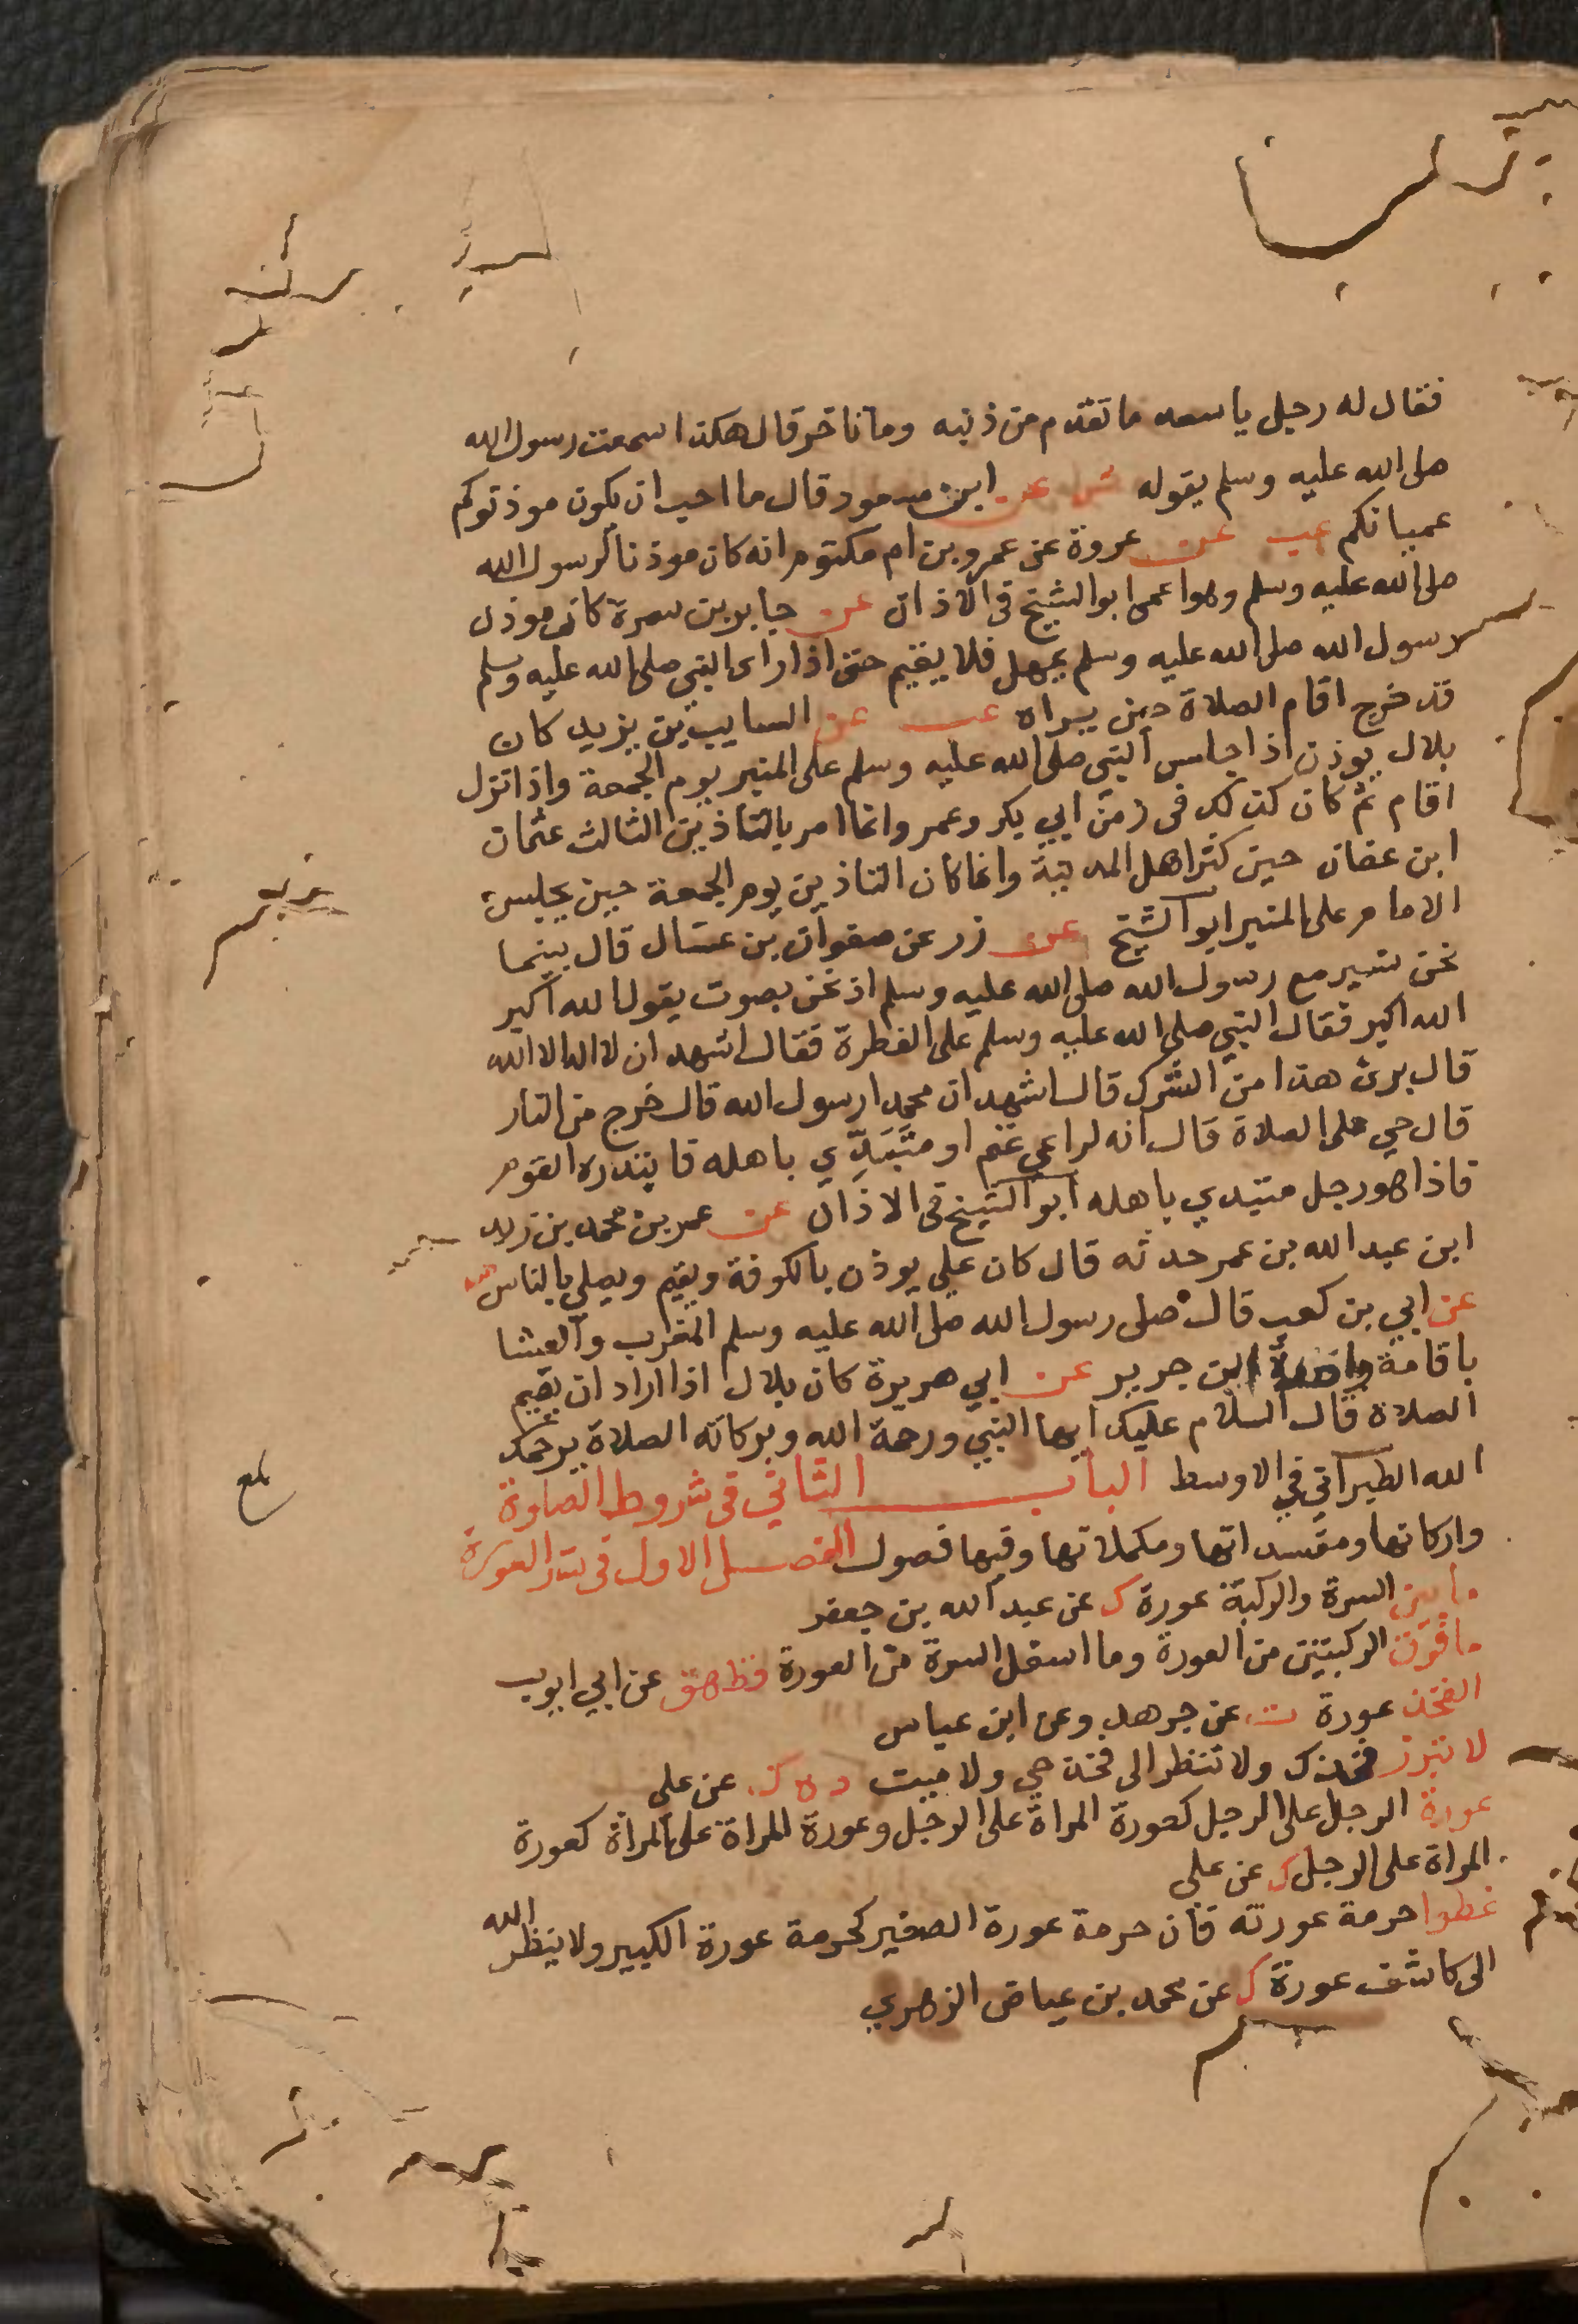 فقال له رجل يا سعد ما تقدم من ذنبه وما تاخر قال هكذا سمعت رسول الله
صلى الله عليه وسلم يقوله عن ابن مسعود قال ما احب ان يكون موذنوكم
عميانكم عب عن عروة عن عمرو بن ام مكتوم انه كان موذنا لرسول الله
صلى الله عليه وسلم وهو اعمى ابو الشيخ في الاذان عن جابر بن سمرة كان موذن
رسول الله صلى الله عليه وسلم يمهل فلا يقيم حتى اذا راى النبي صلى الله عليه وسلم
قد خرج اقام الصلاة حين يراه عب عن السايب بن يزيد كان
بلال يوذن اذا جلس النبي صلى الله عليه وسلم على المنبر يوم الجمعة واذا نزل
اقام ثم كان كذلك في زمن ابي بكر وعمر وانما امر بالتاذين الثالث عثمان
ابن عفان حين كثر اهل المدينة وانما كان التاذين يوم الجمعة حين يجلس
الامام على المنبر ابو الشيخ عن زر عن صفوان بن عسال قال بينما
نحن نسير مع رسول الله صلى الله عليه وسلم اذ نحن بصوت يقول الله اكبر
الله اكبر فقال النبي صلى الله عليه وسلم على الفطرة فقال اشهد ان لا اله الا الله
قال برئ هذا من الشرك قال اشهد ان محمدا رسول الله قال خرج من النار
قال حي على الصلاة قال انه لراعي غنم او متبدي باهله فابتدره القوم
فاذا هو رجل متبدي باهله ابو الشيخ في الاذان عن عمر بن محمد بن زيد
ابن عبد الله بن عمر حدثه قال كان علي يوذن بالكوفة ويقيم ويصلي بالناس
عن ابي بن كعب قال صلى رسول الله صلى الله عليه وسلم المغرب والعشا
باقامة واحدة ابن جرير عن ابي هريرة كان بلال اذا اراد ان يقيم
الصلاة قال السلام عليك ايها النبي ورحمة الله وبركاته الصلاة يرحمك
الله الطبراني في الاوسط الباب الثاني في شروط الصلوة
بلغ
واركانها ومفسداتها ومكملاتها وفيها فصول الفصل الاول في ستر العورة
ما بين السرة والركبة عورة ك عن عبد الله بن جعفر
ما فوق الركبتين من العورة وما اسفل السرة من العورة قط هق عن ابي ايوب
الفخذ عورة ت عن جرهد وعن ابن عباس
لا تبرز فخذك ولا تنظر الى فخذ حي ولا ميت د ه ك عن علي
عورة الرجل على الرجل كعورة المراة على الرجل وعورة المراة على المراة كعورة
المراة على الرجل ك عن علي
غطوا حرمة عورته فان حرمة عورة الصغير كحرمة عورة الكبير ولا ينظر الله
الى كاشف عورة ك عن محمد بن عياض الزهري